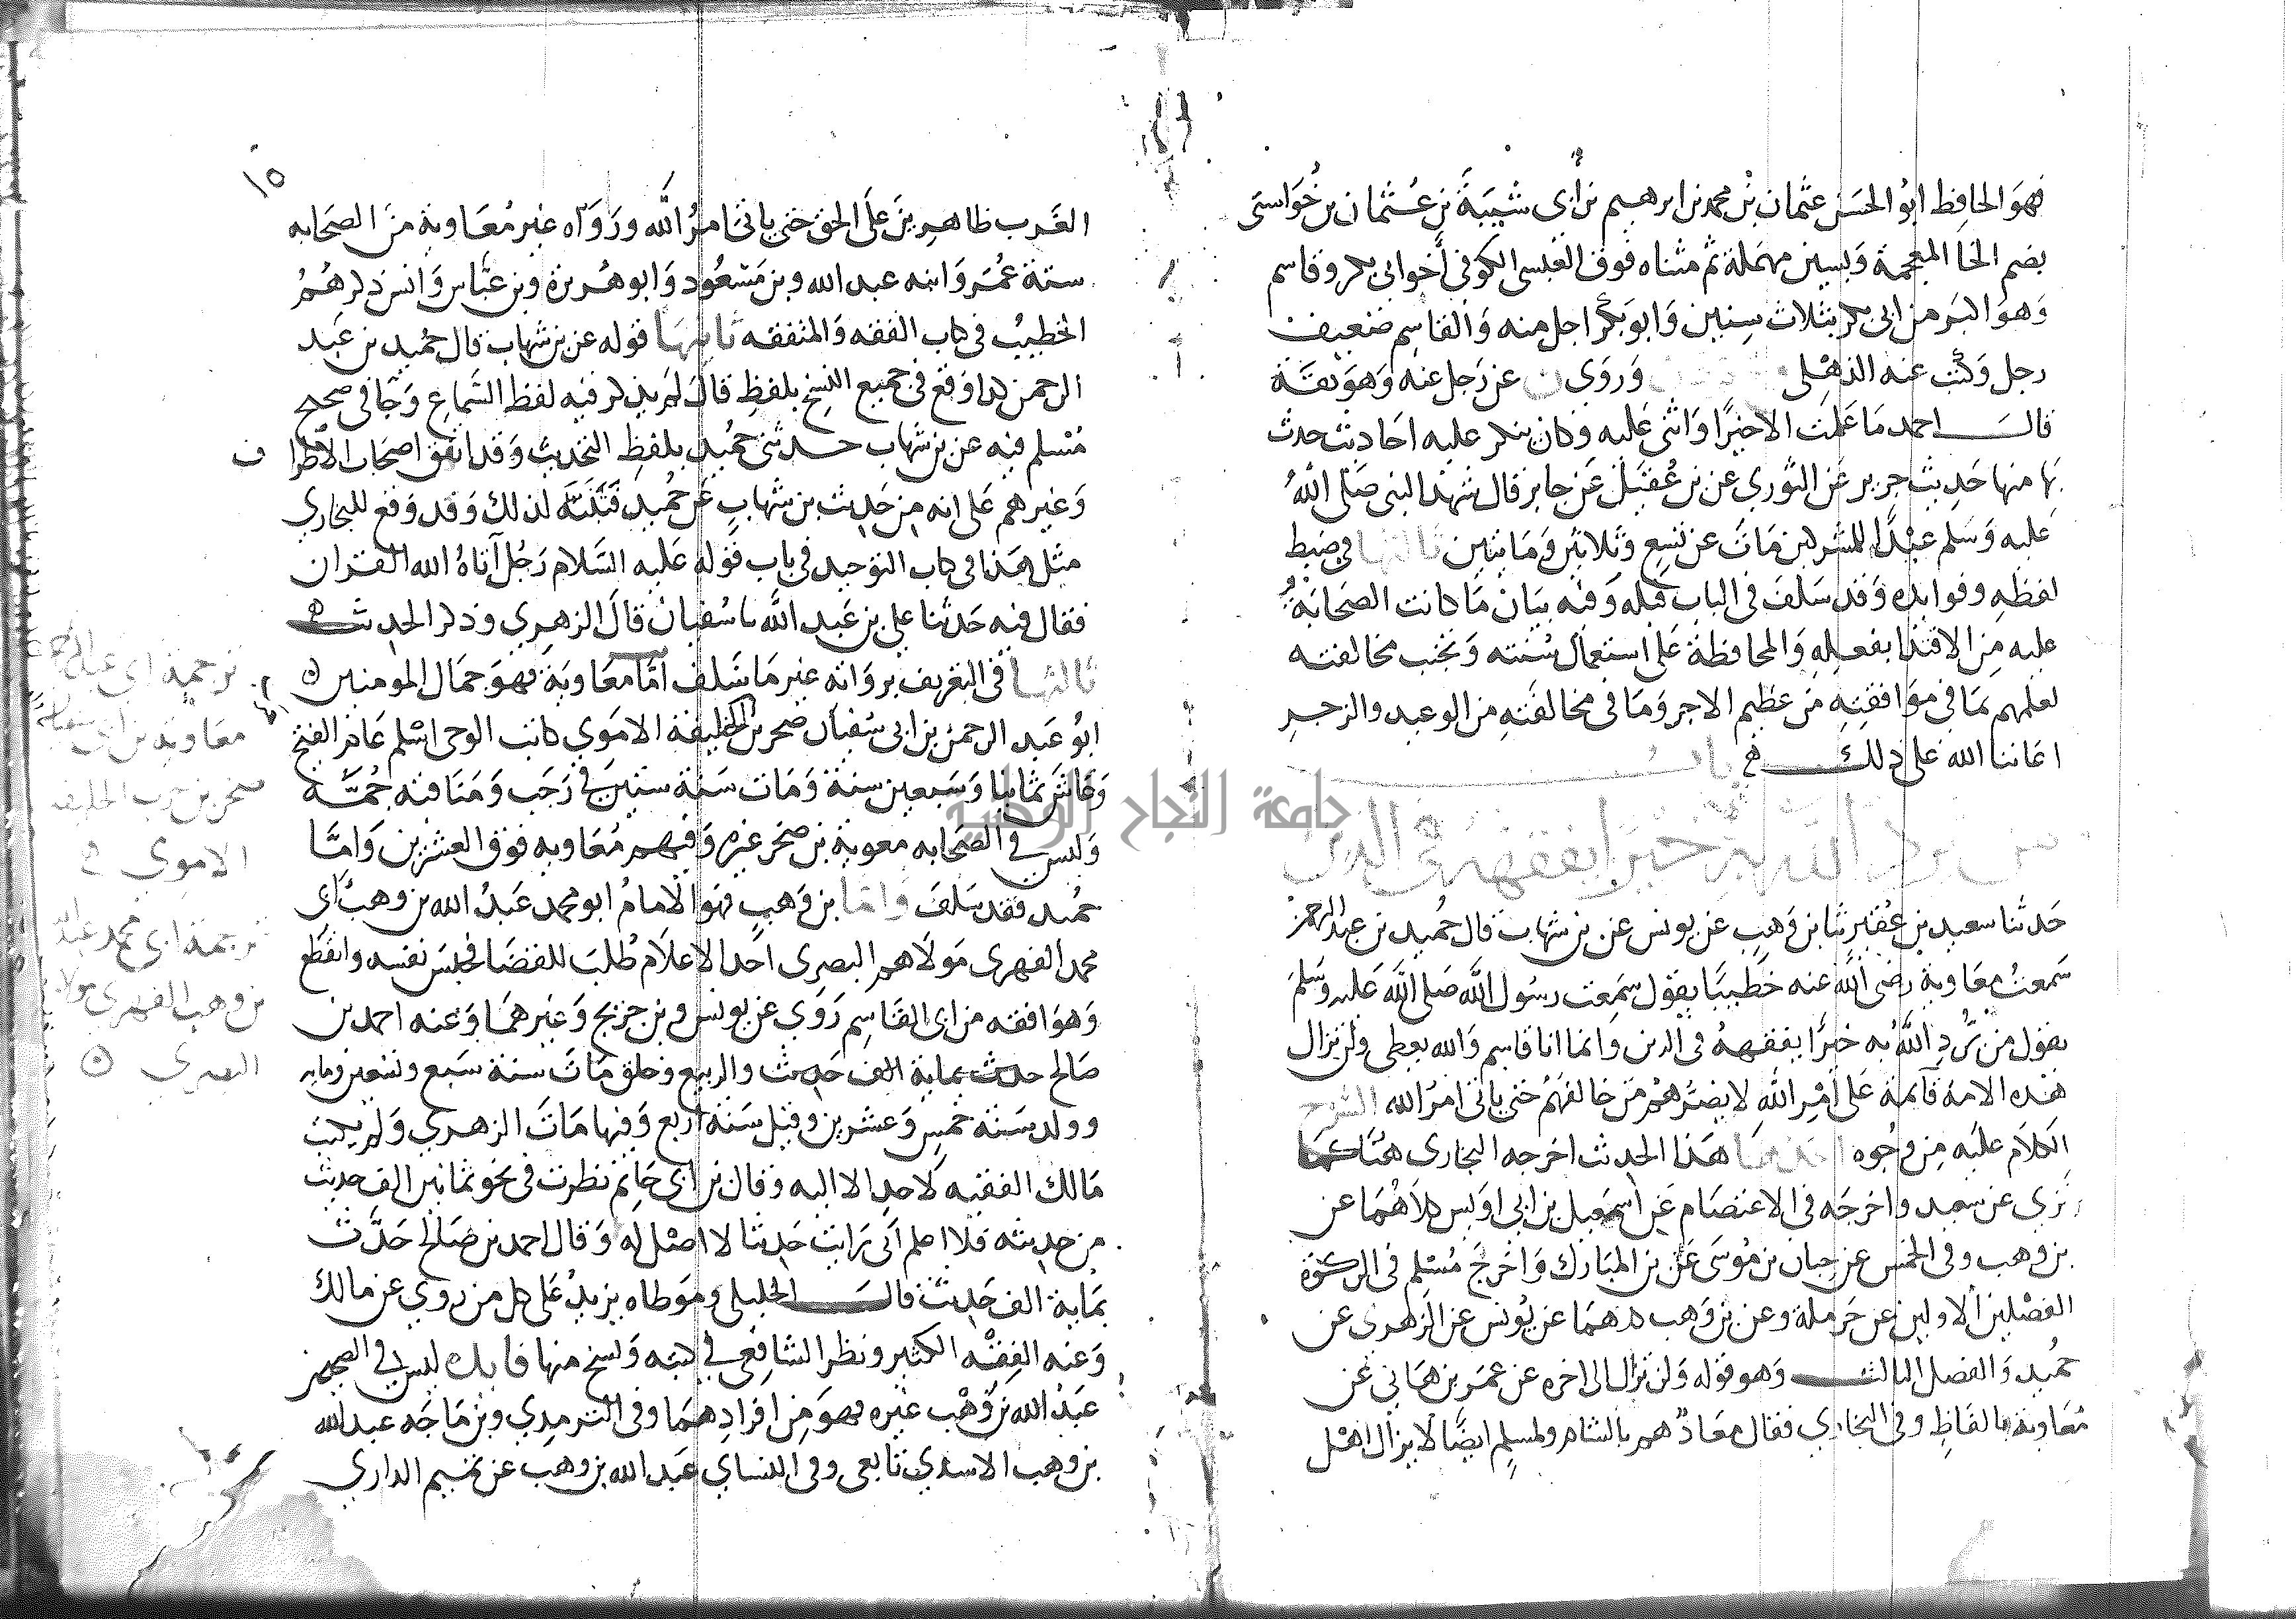 فهو الحافظ ابو الحسن عثمان بن محمد بن ابرهيم بن أبى شيبة بن عثمان بن خواستى
بضم الخا المعجمة وبسين مهملة ثم مثناه فوق العبسى الكوفى أخو ابى بكر وقاسم
وهو اكبر من ابى بكر بثلاث سنين وابو بكر اجل منه والقاسم ضعيف
رجل وكتب عنه الذهلى وروى ن عن رجل عنه وهو ثقة
قال احمد ما علمت الا خيرًا واثنى عليه وكان ينكر عليه احاديث حدث
بها منها حديث جرير عن الثوري عن بن عقيل عن جابر قال شهد النبى صلى الله
عليه وسلم عيدًا للمشركين مات عن تسع وثلاثين ومايتين ثالثها فى ضبط
لفظه وفوايده وقد سلف فى الباب قبله وفيه بيان ما كانت الصحابة
عليه من الاقتدا بفعله والمحافظة على استعمال سنته وتجنب مخالفته
لعلمهم بما فى موافقته من عظيم الاجر وما فى مخالفته من الوعيد والزجر
اعاننا الله على ذلك باب
من يرد الله به خيرًا يفقهه فى الدين
حدثنا سعيد بن عفير ثنا بن وهب عن يونس عن بن شهاب قال حميد بن عبد الرحمن
سمعت معاوية رضى الله عنه خطيبًا يقول سمعت رسول الله صلى الله عليه وسلم
يقول من يرد الله به خيرًا يفقهه فى الدين وانما انا قاسم والله يعطى ولن يزال
هذه الامة قآئمة على أمر الله لا يضرهم من خالفهم حتى ياتى امر الله الشرح
الكلام عليه من وجوه احدها هذا الحديث اخرجه البخارى هنا كما
ترى عن سعيد واخرجه فى الاعتصام عن اسمعيل بن ابى اويس كلاهما عن
بن وهب وفى الخمس عن حبان بن موسى عن بن المبارك واخرج مسلم فى الزكوة
الفصلين الاولين عن حرملة وعن بن وهب كلاهما عن يونس عن الزهرى عن
حميد والفصل الثالث وهو قوله ولن تزال الى اخره عن عمير بن هانى عن
معاوية بالفاظ وفى البخاري فقال معاذ هم بالشام ولمسلم ايضًا لا يزال اهل
١٥
الغرب ظاهرين على الحق حتى ياتى امر الله ورواه غير معاوية من الصحابه
ستة عمر وابنه عبد الله وبن مسعود وابو هريرة وبن عباس وانس ذكرهم
الخطيب فى كتاب الفقه والمتفقه ثانيها قوله عن بن شهاب قال حميد بن عبد
الرحمن كذا وقع فى جميع النسخ بلفظ قال لم يذكر فيه لفظ السماع وجا فى صحيح
مسلم فيه عن بن شهاب حدثنى حميد بلفظ التحديث وقد اتفق اصحاب الاطراف
وغيرهم على انه من حديث بن شهاب عن حميد فتنبه لذلك وقد وقع للبخاري
مثل هذا فى كتاب التوحيد فى باب قوله عليه السلام رجل آتاه الله القران
فقال فيه حدثنا علي بن عبد الله ثنا سفيان قال الزهري وذكر الحديث
ثالثها فى التعريف برواته غير ما سلف أما معاوية فهو جمال المومنين
ابو عبد الرحمن بن ابى سفيان صخر بن الخليفة الاموي كاتب الوحى اسلم عام الفتح
وعاش ثمانيا وسبعين سنة ومات سنة ستين فى رجب ومناقبه جمة
وليس فى الصحابه معوية بن صخر غيره وفيهم معاويه فوق العشرين واما
حميد فقد سلف واما بن وهب فهو الامام ابو محمد عبد الله بن وهب أبى
محمد الفهرى مولاهم البصرى احد الاعلام طلب للقضا فجلس نفسه وانقطع
وهو افقه من ابى القاسم روي عن يونس وبن جريج وغيرهما وعنه احمد بن
صالح حدث بماية الف حديث والربيع وخلق مات سنة سبع وتسعين ومايه
وولد سنة خمس وعشرين وقيل سنة أربع وفيها مات الزهري ولم يكتب
مالك الفقيه لاحد الا اليه وقال بن أبى حاتم نظرت فى نحو ثمانين الف حديث
من حديثه فلا اعلم انى رايت حديثا لا اصل له وقال احمد بن صالح حدث
بماية الف حديث قال الخليلى وموطاه يزيد على كل من روي عن مالك
وعنه الفقه الكثير ونظر الشافعي فى كتبه ونسخ منها فايده ليس فى الصحيحين
عبد الله بن وهب غيره فهو من افرادهما وفى الترمذي وبن ماجه عبد الله
بن وهب الاسدي تابعى وفى النساي عبد الله بن وهب عن تميم الداري
ترجمة ابى عبد الرحمن
معاوية بن ابى سفيان
صخر بن حرب الخليفه
الاموي
ترجمة ابى محمد عبد الله
بن وهب الفهري مولاهم
البصري
جامعة النجاح الوطنية